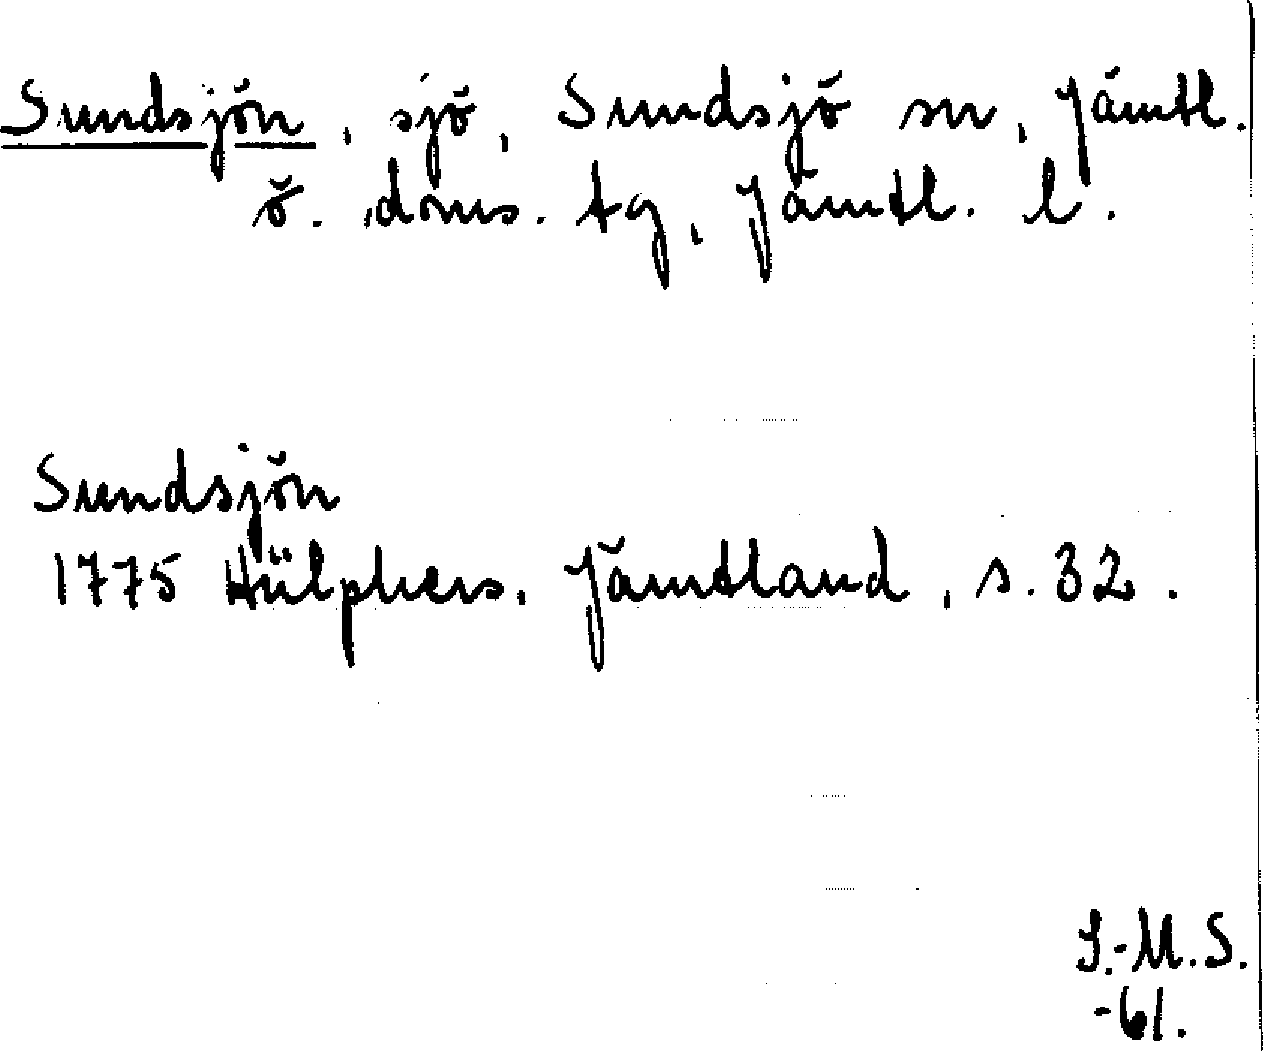 Sundsjön, sjö, Sundsjö sn, Jämtl.
ö. doms. tg, Jämtl. l.
Sundsjön
1775 Hülphers. Jämtland, s. 32.
I.-M.S.
-61.